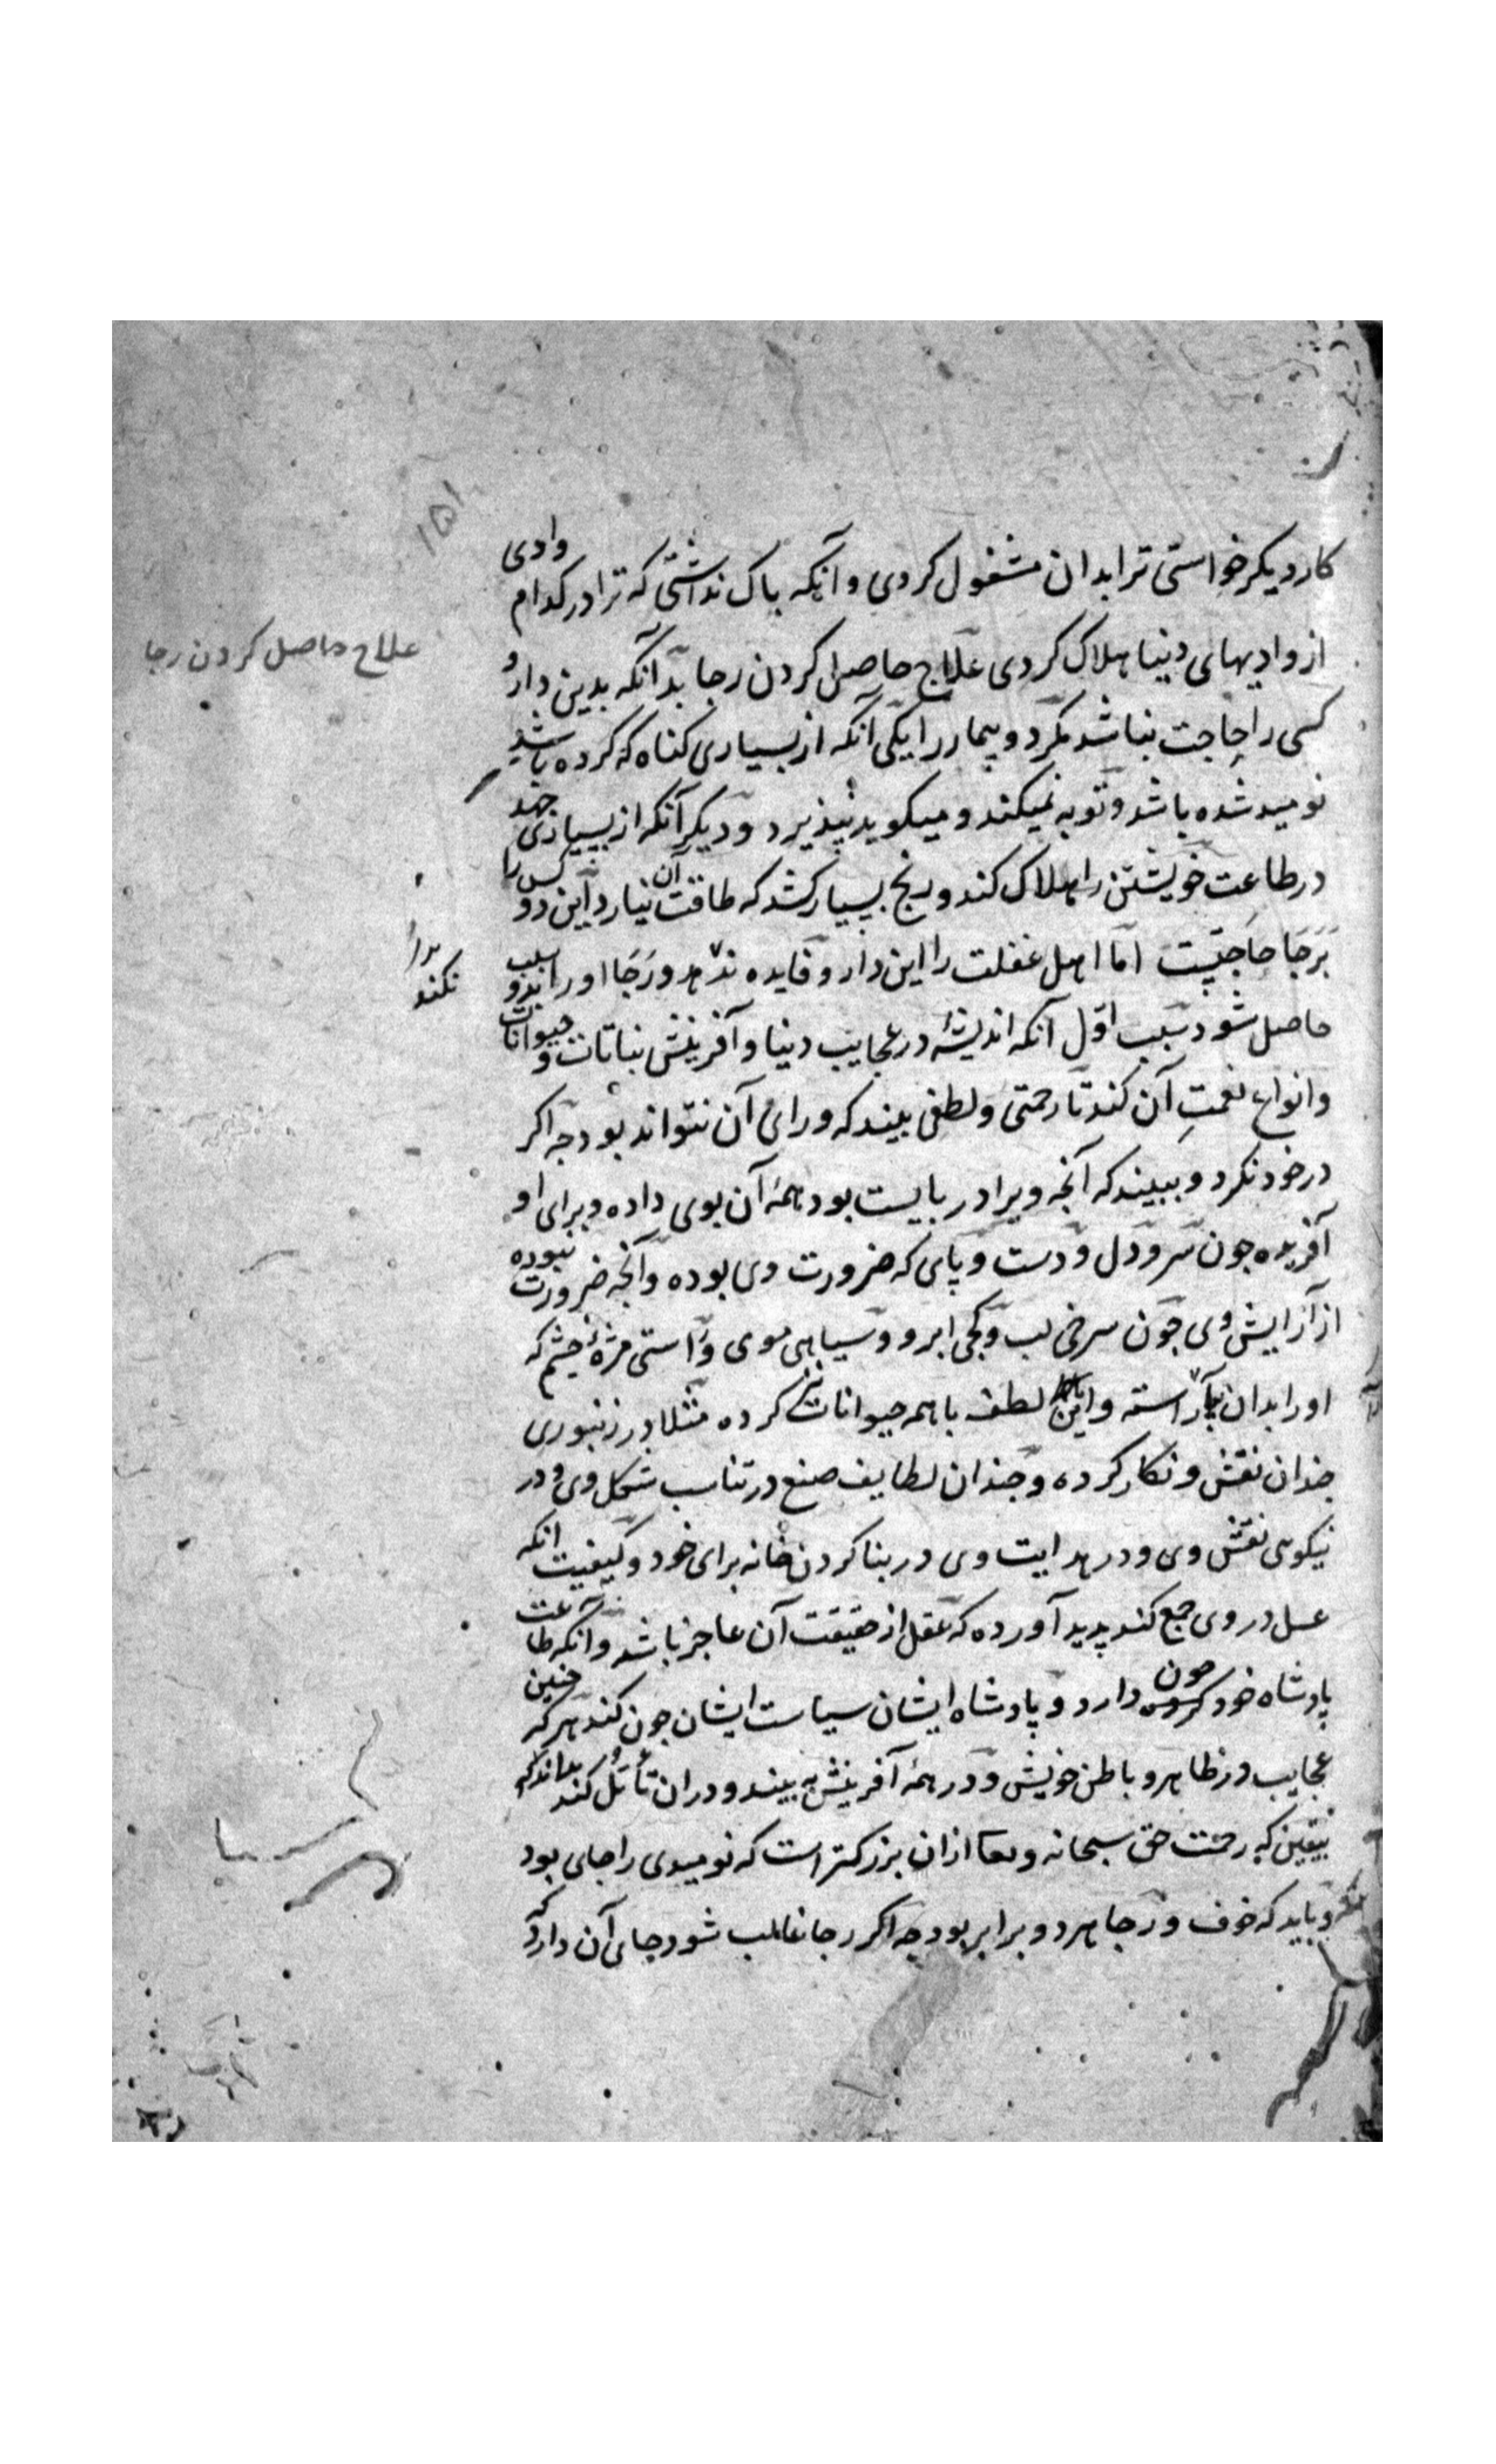 ۱۵۱
کار دیکر خواستی ترا بدان مشغول کردی و آنکه باک نداشتی که ترا در کدام وادی
از وادیهای دنیا هلاک کردی علاج حاصل کردن رجا بدانکه بدین دارو
علاج حاصل کردن رجا
کسی را حاجت نباشد مکر دو بیمار را یکی آنکه از بسیاری کناه که کرده باشد
نومید شده باشد و توبه نمیکند و میکوید نپذیرد و دیکر آنکه از بسیاری جهد
در طاعت خویشتن را هلاک کند و رنج بسیار کشد که طاقت آن نیارد این دو کس را
برجا حاجتست اما اهل غفلت را این دارو فایده ندهد و رجا او را بدو سبب
نکند
حاصل شود سبب اول آنکه اندیشهٔ در عجایب دنیا و آفرینش نباتات و حیوانات
و انواع نعمت آن کند تا رحمتی و لطفی بیند که ورای آن نتواند بود جه اکر
در خود نکرد و ببیند که آنجه ویرا در بایست بود همهٔ آن بوی داده و برای او
آفریده جون سر و دل و دست و پای که ضرورت وی بوده و آنجه ضرورت نبوده
از آرایش وی جون سرخی لب و کجی ابرو و سیاهی موی و راستی مژهٔ چشم که
او را بدان بیاراسته و این لطف با همه حیوانات نیز کرده مثلا در زنبوری
جندان نقش و نکار کرده و جندان لطایف صنع در تناسب شکل وی و در
نیکوی نقش وی و در هدایت وی در بنا کردن خانه برای خود و کیفیت انکه
عسل در وی جمع کند پدید آورده که عقل از حقیقت آن عاجز باشد و آنکه طاعت
پادشاه خود جون دارد و پادشاه ایشان سیاست ایشان جون کند هر که جنین
عجایب در ظاهر و باطن خویش و در همهٔ آفرینش به بیند و دران تأمل کند بداند که
بیقین که رحمت حق سبحانه و تعا ازان بزرکتر است که نومیدی را جای بود
و باید که خوف و رجا هر دو برابر بود جه اکر رجا غالب شود جای آن دارد که